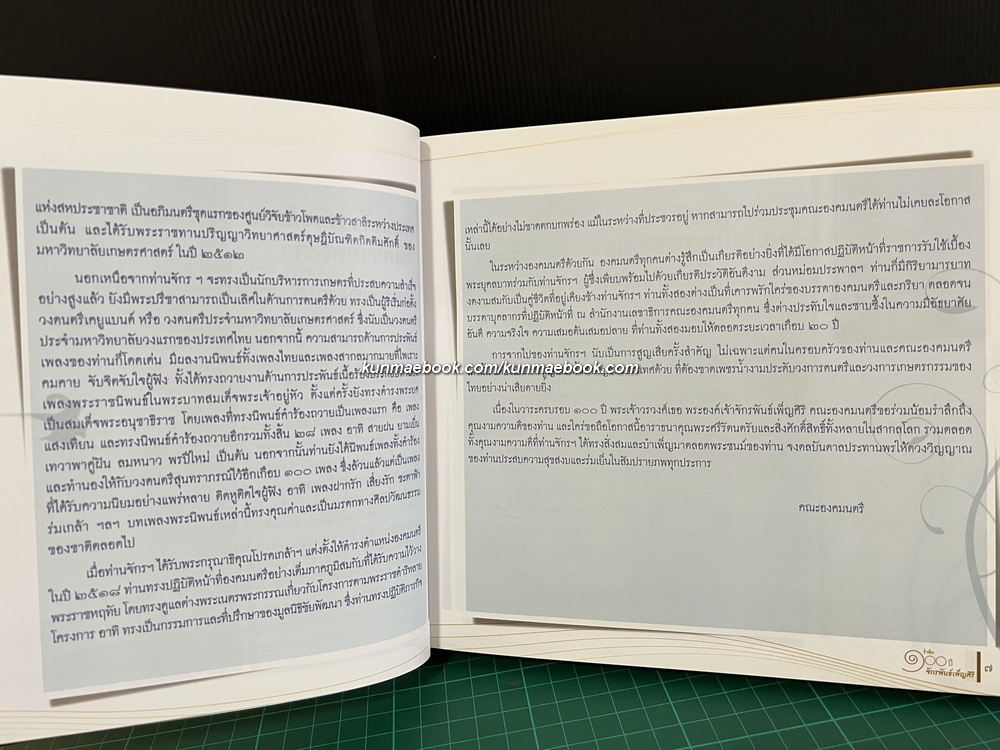 แห่งสหประชาชาติ เป็นอภิมนตรีชุดแรกของศูนย์วิจัยข้าวโพดและข้าวสาลีระหว่างประเทศ
เป็นต้น และได้รับพระราชทานปริญญาวิทยาศาสตร์ดุษฎีบัณฑิตกิตติมศักดิ์ ของ
มหาวิทยาลัยเกษตรศาสตร์ ในปี ๒๕๑๒
นอกเหนือจากท่านจักร ฯ จะทรงเป็นนักบริหารการเกษตรที่ประสบความสำเร็จ
อย่างสูงแล้ว ยังมีพระปรีชาสามารถเป็นเลิศในด้านการดนตรีด้วย ทรงเป็นผู้ริเริ่มก่อตั้ง
วงดนตรีเคยูแบนด์ หรือ วงดนตรีประจำมหาวิทยาลัยเกษตรศาสตร์ ซึ่งนับเป็นวงดนตรี
ประจำมหาวิทยาลัยวงแรกของประเทศไทย นอกจากนี้ ความสามารถด้านการประพันธ์
เพลงของท่านก็โดดเด่น มีผลงานนิพนธ์ทั้งเพลงไทยและเพลงสากลมากมายที่ไพเราะ
คมคาย จับจิตจับใจผู้ฟัง ทั้งได้ทรงถวายงานด้านการประพันธ์เนื้อร้องประกอบทำนอง
เพลงพระราชนิพนธ์ในพระบาทสมเด็จพระเจ้าอยู่หัว ตั้งแต่ครั้งยังทรงดำรงพระยศ
เป็นสมเด็จพระอนุชาธิราช โดยเพลงที่ทรงนิพนธ์คำร้องถวายเป็นเพลงแรก คือ เพลง
แสงเทียน และทรงนิพนธ์คำร้องถวายอีกรวมทั้งสิ้น ๒๘ เพลง อาทิ สายฝน ยามเย็น
เทวาพาคู่ฝัน ลมหนาว พรปีใหม่ เป็นต้น นอกจากนั้นท่านยังได้นิพนธ์เพลงทั้งคำร้อง
และทำนองให้กับวงดนตรีสุนทราภรณ์ไว้อีกเกือบ ๑๐๐ เพลง ซึ่งล้วนแล้วแต่เป็นเพลง
ที่ได้รับความนิยมอย่างแพร่หลาย ติดหูติดใจผู้ฟัง อาทิ เพลงฝากรัก เสี่ยงรัก ชะตาฟ้า
ร่มเกล้า ฯลฯ บทเพลงพระนิพนธ์เหล่านี้ทรงคุณค่าและเป็นมรดกทางศิลปวัฒนธรรม
ของชาติตลอดไป
เมื่อท่านจักรฯ ได้รับพระกรุณาธิคุณโปรดเกล้าฯ แต่งตั้งให้ดำรงตำแหน่งองคมนตรี
ในปี ๒๕๑๘ ท่านทรงปฏิบัติหน้าที่องคมนตรีอย่างเต็มภาคภูมิสมกับที่ได้รับความไว้วาง
พระราชหฤทัย โดยทรงดูแลต่างพระเนตรพระกรรณเกี่ยวกับโครงการตามพระราชดำริหลาย
โครงการ อาทิ ทรงเป็นกรรมการและที่ปรึกษาของมูลนิธิชัยพัฒนา ซึ่งท่านทรงปฏิบัติภารกิจ
เหล่านี้ได้อย่างไม่ขาดตกบกพร่อง แม้ในระหว่างที่ประชวรอยู่ หากสามารถไปร่วมประชุมคณะองคมนตรีได้ท่านไม่เคยละโอกาส
นั้นเลย
ในระหว่างองคมนตรีด้วยกัน องคมนตรีทุกคนต่างรู้สึกเป็นเกียรติอย่างยิ่งที่ได้มีโอกาสปฏิบัติหน้าที่ราชการรับใช้เบื้อง
พระยุคลบาทร่วมกับท่านจักรฯ ผู้ซึ่งเพียบพร้อมไปด้วยเกียรติประวัติอันดีงาม ส่วนหม่อมประพาลฯ ท่านก็มีกิริยามารยาท
งดงามสมกับเป็นคู่ชีวิตที่อยู่เคียงข้างท่านจักรฯ ท่านทั้งสองต่างเป็นที่เคารพรักใคร่ของบรรดาองคมนตรีและภริยา ตลอดจน
บรรดาบุคลากรที่ปฏิบัติหน้าที่ ณ สำนักงานเลขาธิการคณะองคมนตรีทุกคน ซึ่งต่างประทับใจและซาบซึ้งในความมีอัธยาศัย
อันดี ความจริงใจ ความเสมอต้นเสมอปลาย ที่ท่านทั้งสองมอบให้ตลอดระยะเวลาเกือบ ๒๐ ปี
การจากไปของท่านจักรฯ นับเป็นการสูญเสียครั้งสำคัญ ไม่เฉพาะแต่คนในครอบครัวของท่านและคณะองคมนตรี
kunmaebook.com/kunmaebook.com
ด้วย ที่ต้องขาดเพชรน้ำงามประดับวงการดนตรีและวงการเกษตรกรรมของ
ไทยอย่างน่าเสียดายยิ่ง
เนื่องในวาระครบรอบ ๑๐๐ ปี พระเจ้าวรวงศ์เธอ พระองค์เจ้าจักรพันธ์เพ็ญศิริ คณะองคมนตรีขอร่วมน้อมรำลึกถึง
คุณงามความดีของท่าน และใคร่ขอถือโอกาสนี้อาราธนาคุณพระศรีรัตนตรัยและสิ่งศักดิ์สิทธิ์ทั้งหลายในสากลโลก รวมตลอด
ทั้งคุณงามความดีที่ท่านจักรฯ ได้ทรงสั่งสมและบำเพ็ญมาตลอดพระชนม์ของท่าน จงดลบันดาลประทานพรให้ดวงวิญญาณ
ของท่านประสบความสุขสงบและร่มเย็นในสัมปรายภพทุกประการ
คณะองคมนตรี
รำลึก
๑๐๐ ปี
จักรพันธ์เพ็ญศิริ
๗